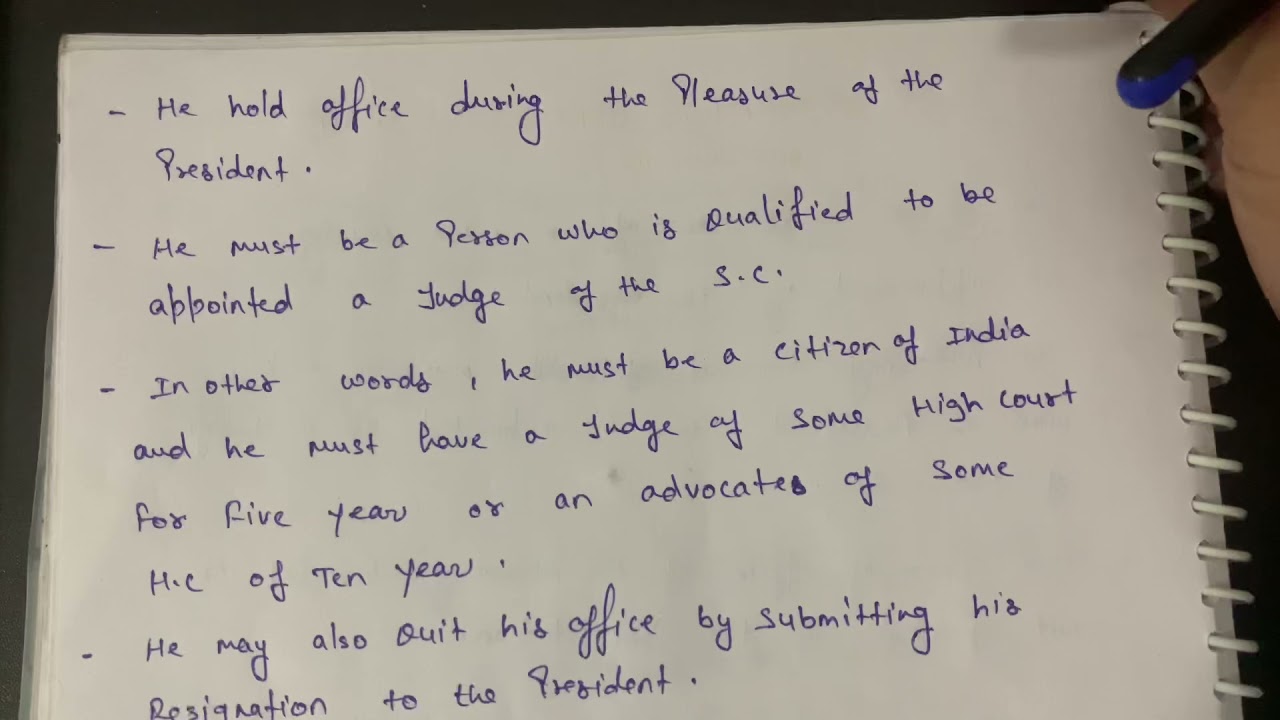 - He hold office during the Pleasure of the
President.
- He must be a Person who is Qualified to be
appointed a Judge of the S.C.
- In other words, he must be a citizen of India
and he must have a Judge of some High Court
for five year or an advocates of some
H.C of Ten year.
- He may also Quit his office by submitting his
Resignation to the President.